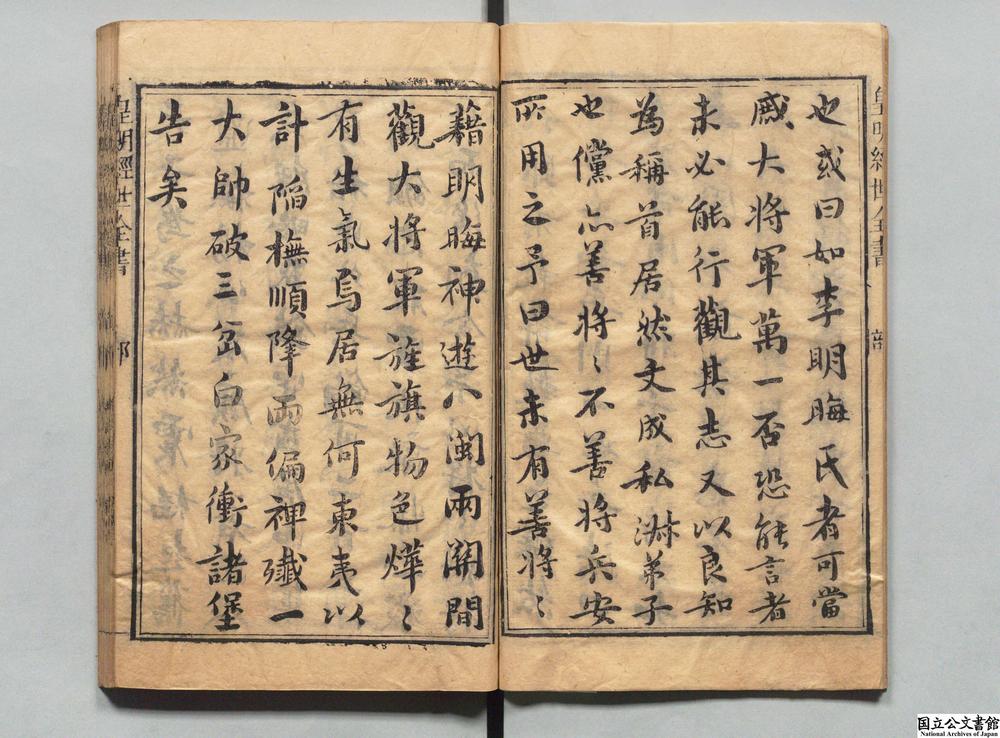 也或曰如李明晦氏者可當
戚大将軍萬一否恐能言者
未必能行觀其志又以良知
為稱首居然文成私淋弟子
也儻亦善将〻不善将兵安
所用之予曰世未有善将〻
藉明晦神遊八閩兩關間
觀大将軍旌旗物色燁〻
有生氣焉居無何東夷以
計陷撫順降兩偏裨殲一
大帥破三岔白家衝諸堡
告矣
皇明經世全書
皇明經世全書
国立公文書館
National Archives of Japan